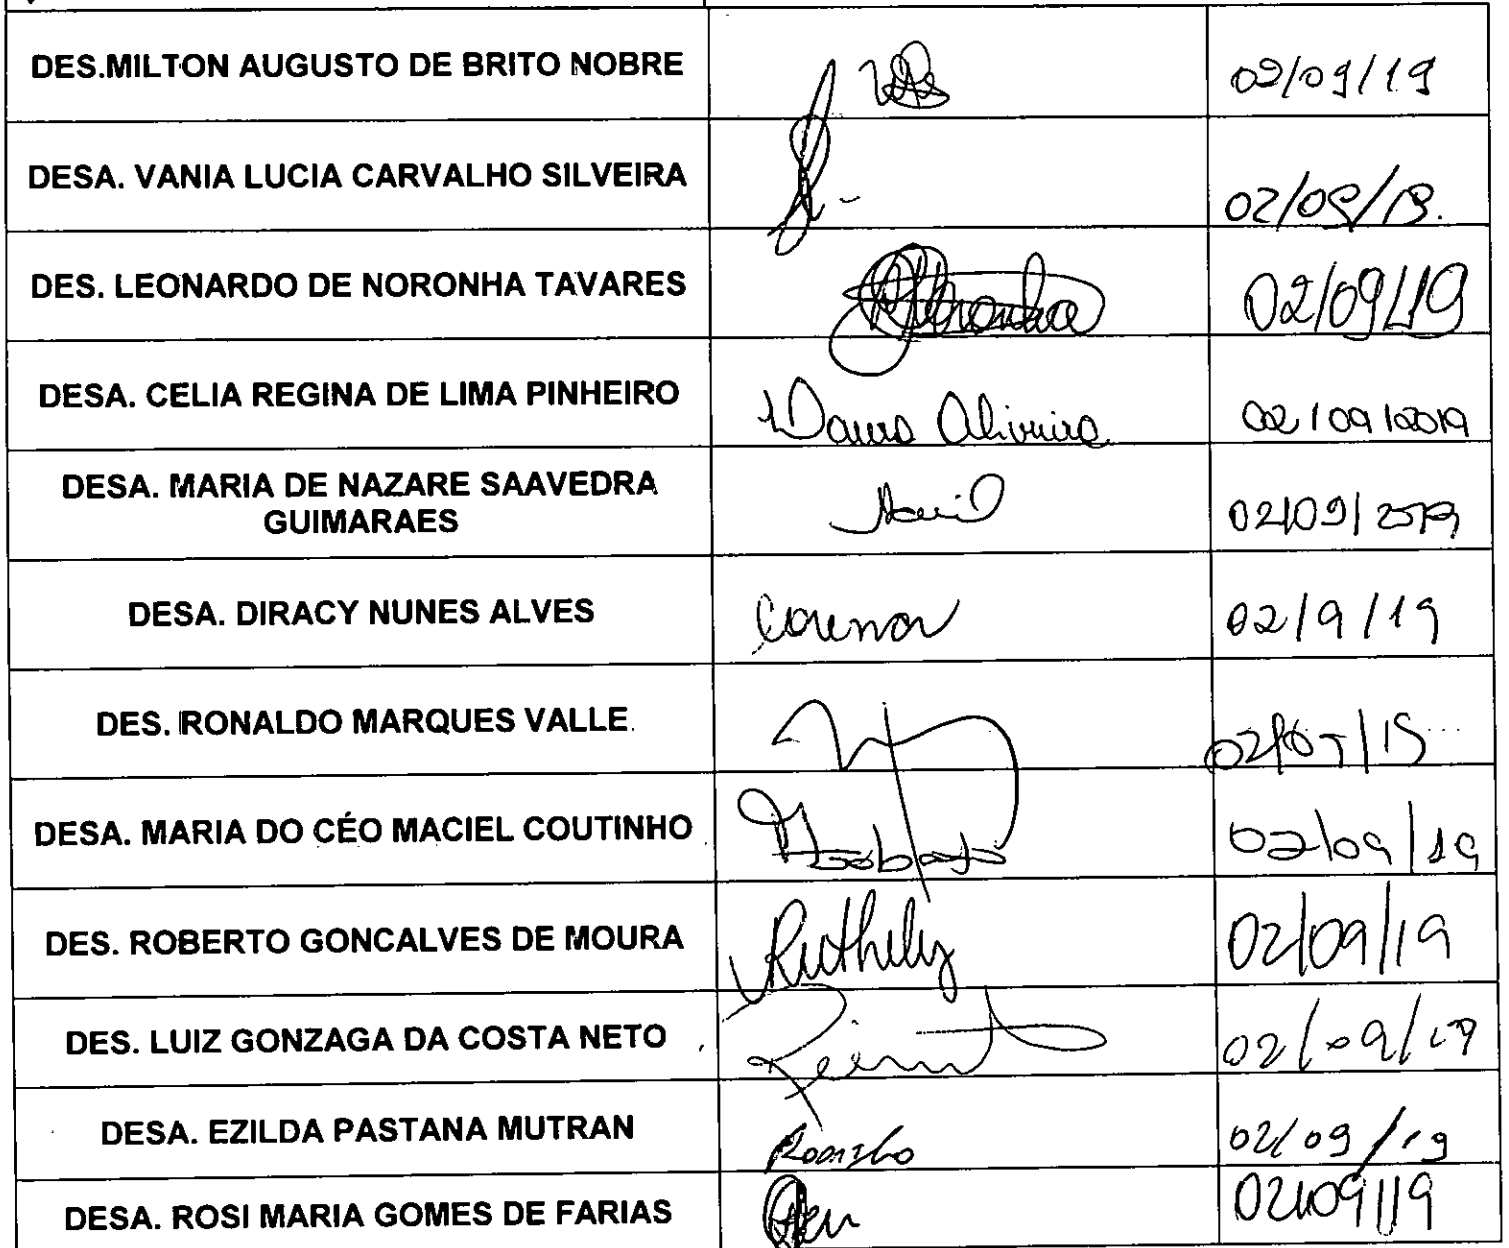 DES.MILTON AUGUSTO DE BRITO NOBRE 02/09/19
DESA. VANIA LUCIA CARVALHO SILVEIRA 02/09/19.
DES. LEONARDO DE NORONHA TAVARES 02/09/19
DESA. CELIA REGINA DE LIMA PINHEIRO Oliveira 02/09/2019
DESA. MARIA DE NAZARE SAAVEDRA
GUIMARAES 02/09/2019
DESA. DIRACY NUNES ALVES 02/9/19
DES. RONALDO MARQUES VALLE
DESA. MARIA DO CÉO MACIEL COUTINHO 02/09/19
DES. ROBERTO GONCALVES DE MOURA Ruthely 02/09/19
DES. LUIZ GONZAGA DA COSTA NETO 02/09/19
DESA. EZILDA PASTANA MUTRAN 02/09/19
DESA. ROSI MARIA GOMES DE FARIAS 02/09/19